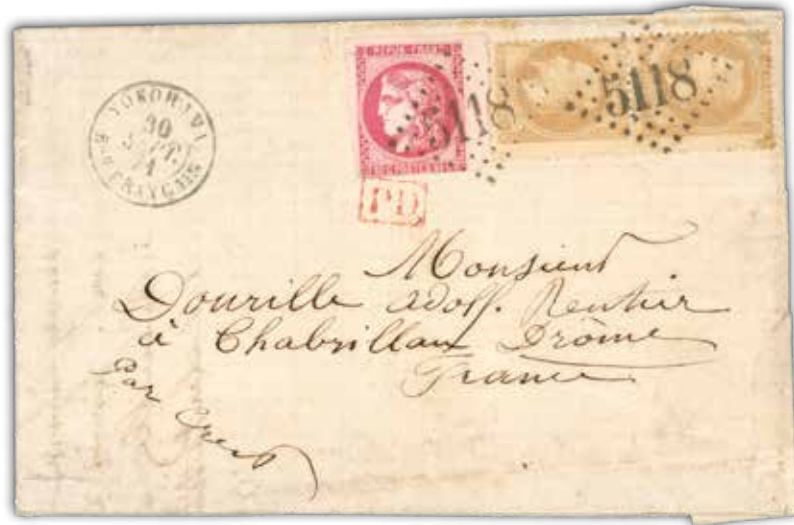 YOKOHAMA
30
SEPT.
71
Bau FRANÇAIS
REPUB. FRANC.
5118
5118
PD
Monsieur
Dourille Adolf. Rentier
à Chabrillan Drôme
France
Par Crest